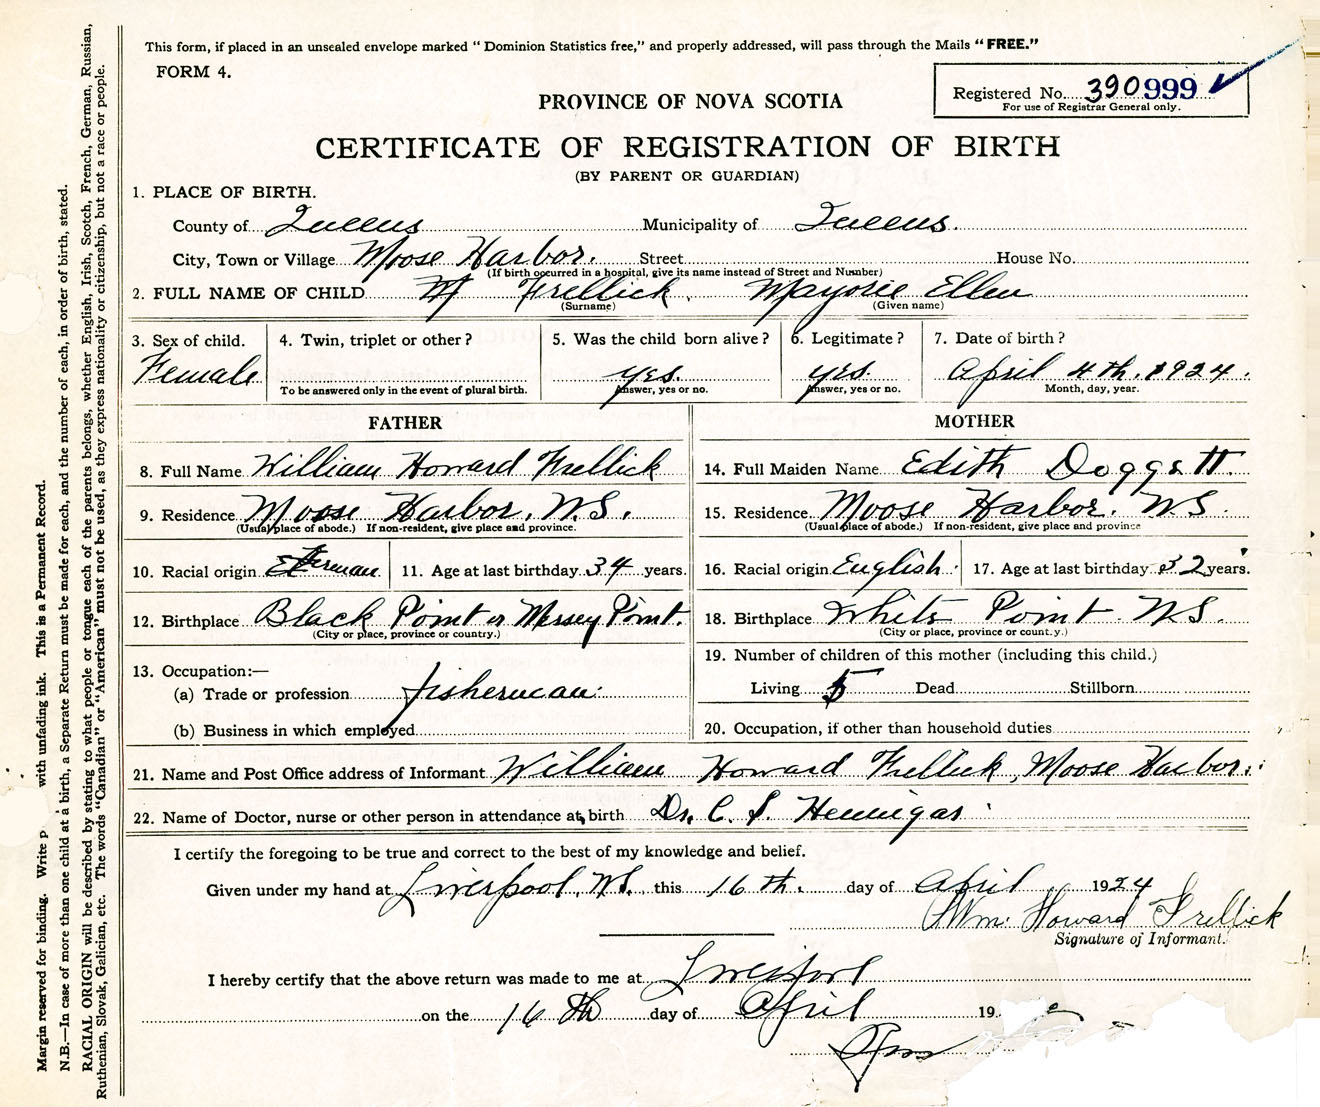 This form, if placed in an unsealed envelope marked "Dominion Statistics free," and properly addressed, will pass through the Mails "FREE."
FORM 4.
Registered No. 390999
For use of Registrar General only.
PROVINCE OF NOVA SCOTIA
CERTIFICATE OF REGISTRATION OF BIRTH
(BY PARENT OR GUARDIAN)
1. PLACE OF BIRTH.
County of Queens Municipality of Queens.
City, Town or Village Moose Harbor. Street House No.
(If birth occurred in a hospital, give its name instead of Street and Number)
2. FULL NAME OF CHILD Frellick, Marjorie Ellen
(Surname) (Given name)
3. Sex of child. 4. Twin, triplet or other? 5. Was the child born alive? 6. Legitimate? 7. Date of birth?
Female yes. yes. April 4th. 1924.
To be answered only in the event of plural birth. Answer, yes or no. Answer, yes or no. Month, day, year.
FATHER MOTHER
8. Full Name William Howard Frellick 14. Full Maiden Name Edith Doggett.
9. Residence Moose Harbor, N.S. 15. Residence Moose Harbor. N.S.
(Usual place of abode.) If non-resident, give place and province. (Usual place of abode.) If non-resident, give place and province
10. Racial origin German 11. Age at last birthday 34 years. 16. Racial origin English. 17. Age at last birthday 32 years.
12. Birthplace Black Point or Mersey Point. 18. Birthplace White Point N.S.
(City or place, province or country.) (City or place, province or count.y.)
13. Occupation:— 19. Number of children of this mother (including this child.)
(a) Trade or profession fisherman. Living 5 Dead Stillborn
(b) Business in which employed 20. Occupation, if other than household duties
21. Name and Post Office address of Informant William Howard Frellick, Moose Harbor.
22. Name of Doctor, nurse or other person in attendance at birth Dr. C. S. Hennigar
I certify the foregoing to be true and correct to the best of my knowledge and belief.
Given under my hand at Liverpool, N.S. this 16th. day of April 1924
Wm. Howard Frellick
Signature of Informant.
I hereby certify that the above return was made to me at Liverpool
on the 16th day of April 19
Margin reserved for binding. Write p with unfading ink. This is a Permanent Record.
N.B.—In case of more than one child at a birth, a Separate Return must be made for each, and the number of each, in order of birth, stated.
RACIAL ORIGIN will be described by stating to what people or tongue each of the parents belongs, whether English, Irish, Scotch, French, German, Russian,
Ruthenian, Slovak, Galician, etc. The words "Canadian" or "American" must not be used, as they express nationality or citizenship, but not a race or people.